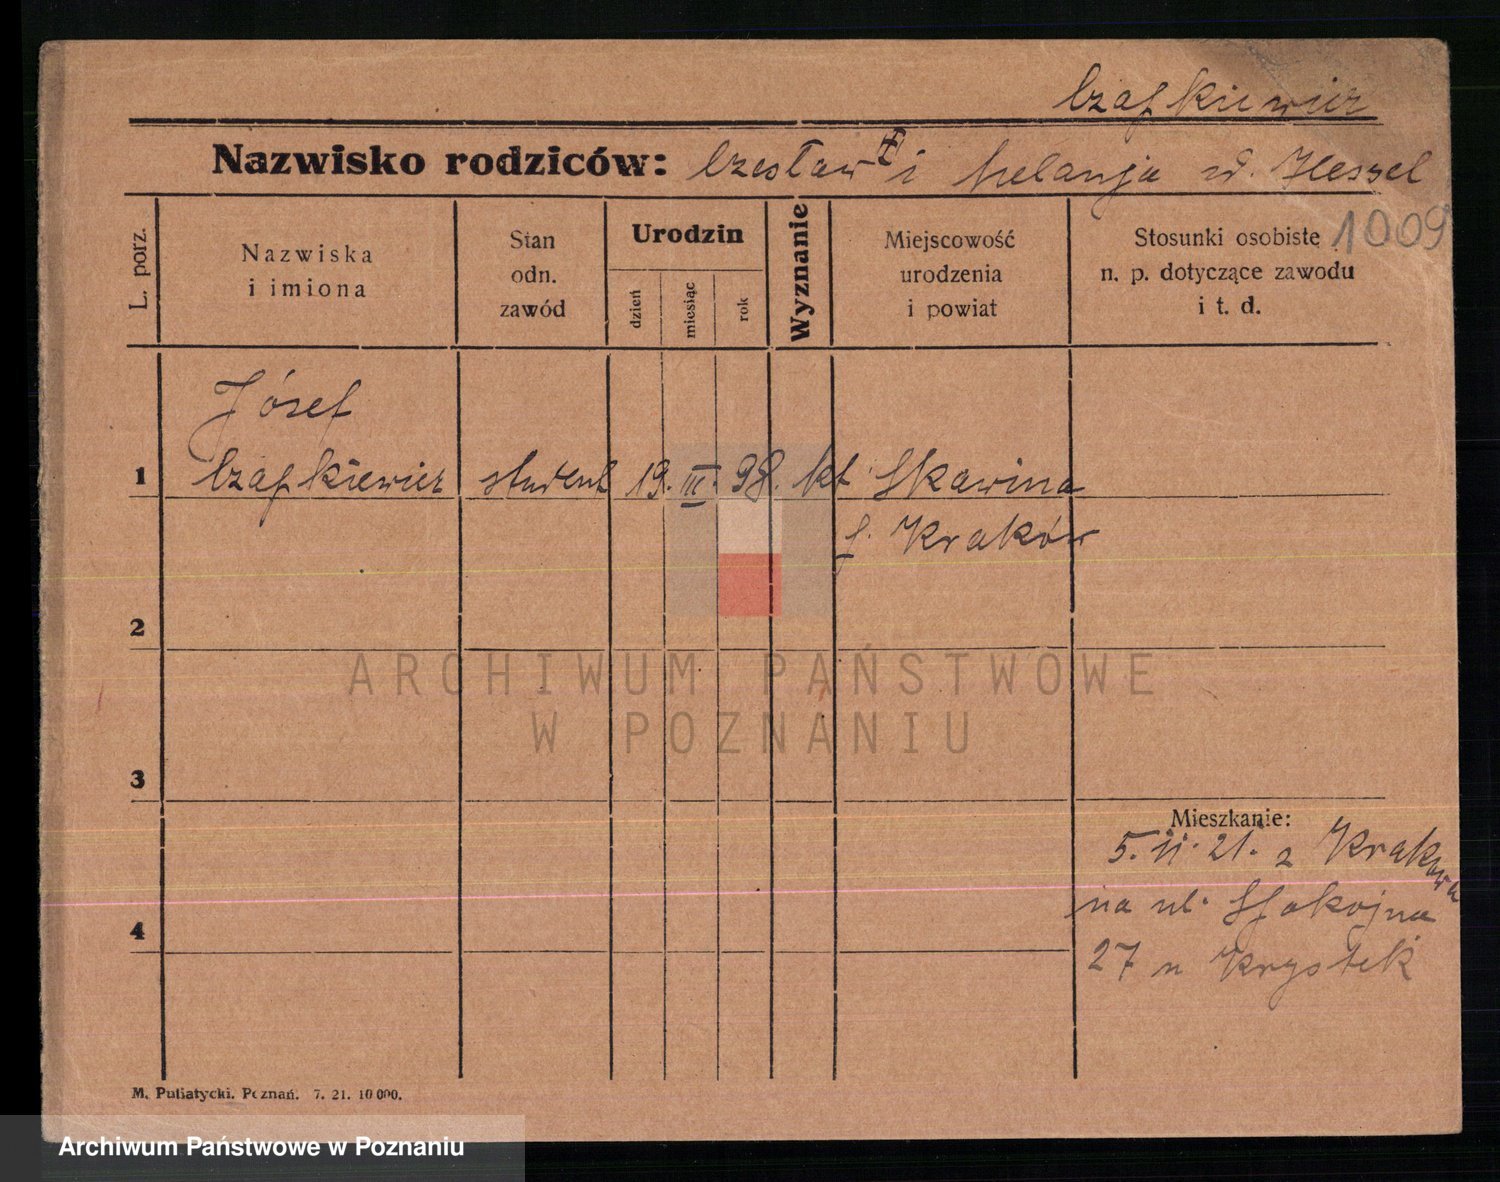 Czapkiewicz
Nazwisko rodziców: Czesław † i Melanja zd. Hessel
1009
L. porz.
Nazwiska
i imiona
Stan
odn.
zawód
Urodzin
dzień
miesiąc
rok
Wyznanie
Miejscowość
urodzenia
i powiat
Stosunki osobiste
n. p. dotyczące zawodu
i t. d.
Józef
1 Czapkiewicz student 19. III. 98. kt Skawina
p. Kraków
2
ARCHIWUM PAŃSTWOWE
W POZNANIU
3
Mieszkanie:
5. 11. 21. z Krakowa
na ul. Spokojna
4
27 u Krystek
M. Putiatycki. Poznań. 7. 21. 10 000.
Archiwum Państwowe w Poznaniu